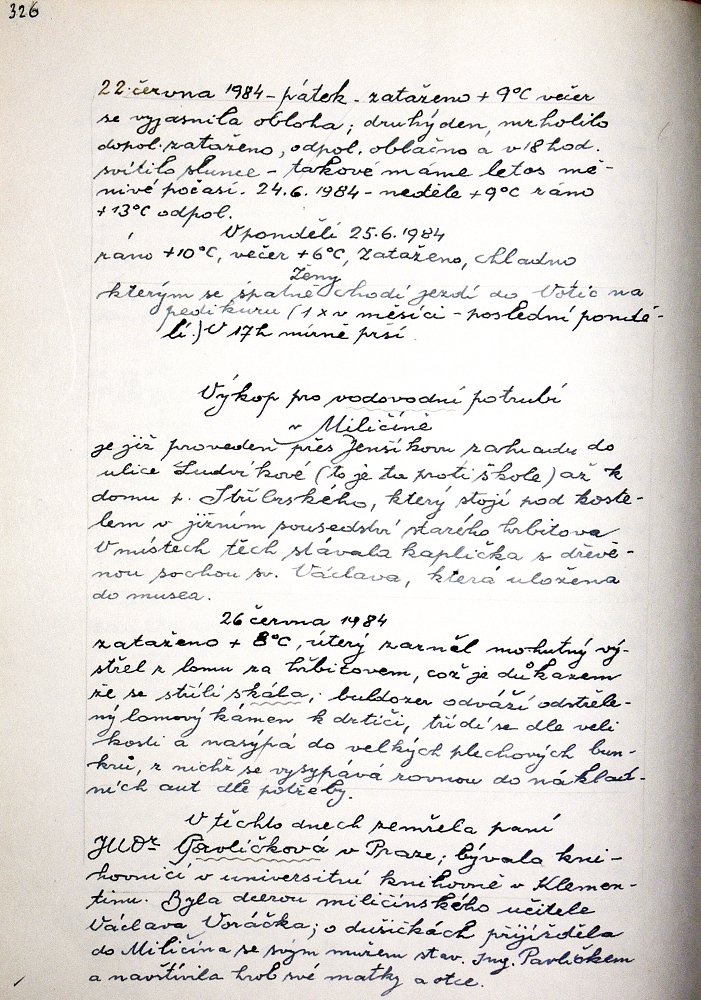 326
22. června 1984 - pátek - zataženo + 9°C večer
se vyjasnila obloha; druhý den, mrholilo
dopol. zataženo, odpol. oblačno a v 18 hod.
svítilo slunce - takové máme letos mě-
nivé počasí. 24.6. 1984 - neděle +9°C ráno
+13°C odpol.
V pondělí 25.6.1984
ráno +10°C, večer +6°C, zataženo, chladno
Ženy
kterým se špatně chodí jezdí do Votic na
pedikuru (1 x v měsíci - poslední pondě-
lí.) V 17h mírně prší
Výkop pro vodovodní potrubí
v Miličíně
je již proveden přes Jenšíkovu zahradu do
ulice Ludvíkové (to je ta proti škole) až k
domu p. Stříbrského, který stojí pod koste-
lem v jižním sousedství starého hřbitova
V místech těch stávala kaplička s dřevě-
nou sochou sv. Václava, která uložena
do musea.
26 června 1984
zataženo + 8°C, úterý zarněl mohutný vý-
střel z lomu za hřbitovem, což je důkazem
že se střílí skála, buldozer odváží odstřele-
ný lomový kámen k drtiči, třídí se dle veli
kosti a nasýpá do velkých plechových bun-
krů, z nichž se vysypává rovnou do náklad-
ních aut dle potřeby.
V těchto dnech zemřela paní
JUDr Pavlíčková v Praze; bývala kni-
hovnicí v universitní knihovně v Klemen-
tinu. Byla dcerou miličínského učitele
Václava Voráčka; o dušičkách přijížděla
do Miličína se svým mužem stav. Ing. Pavlíčkem
a navštívila hrob své matky a otce.